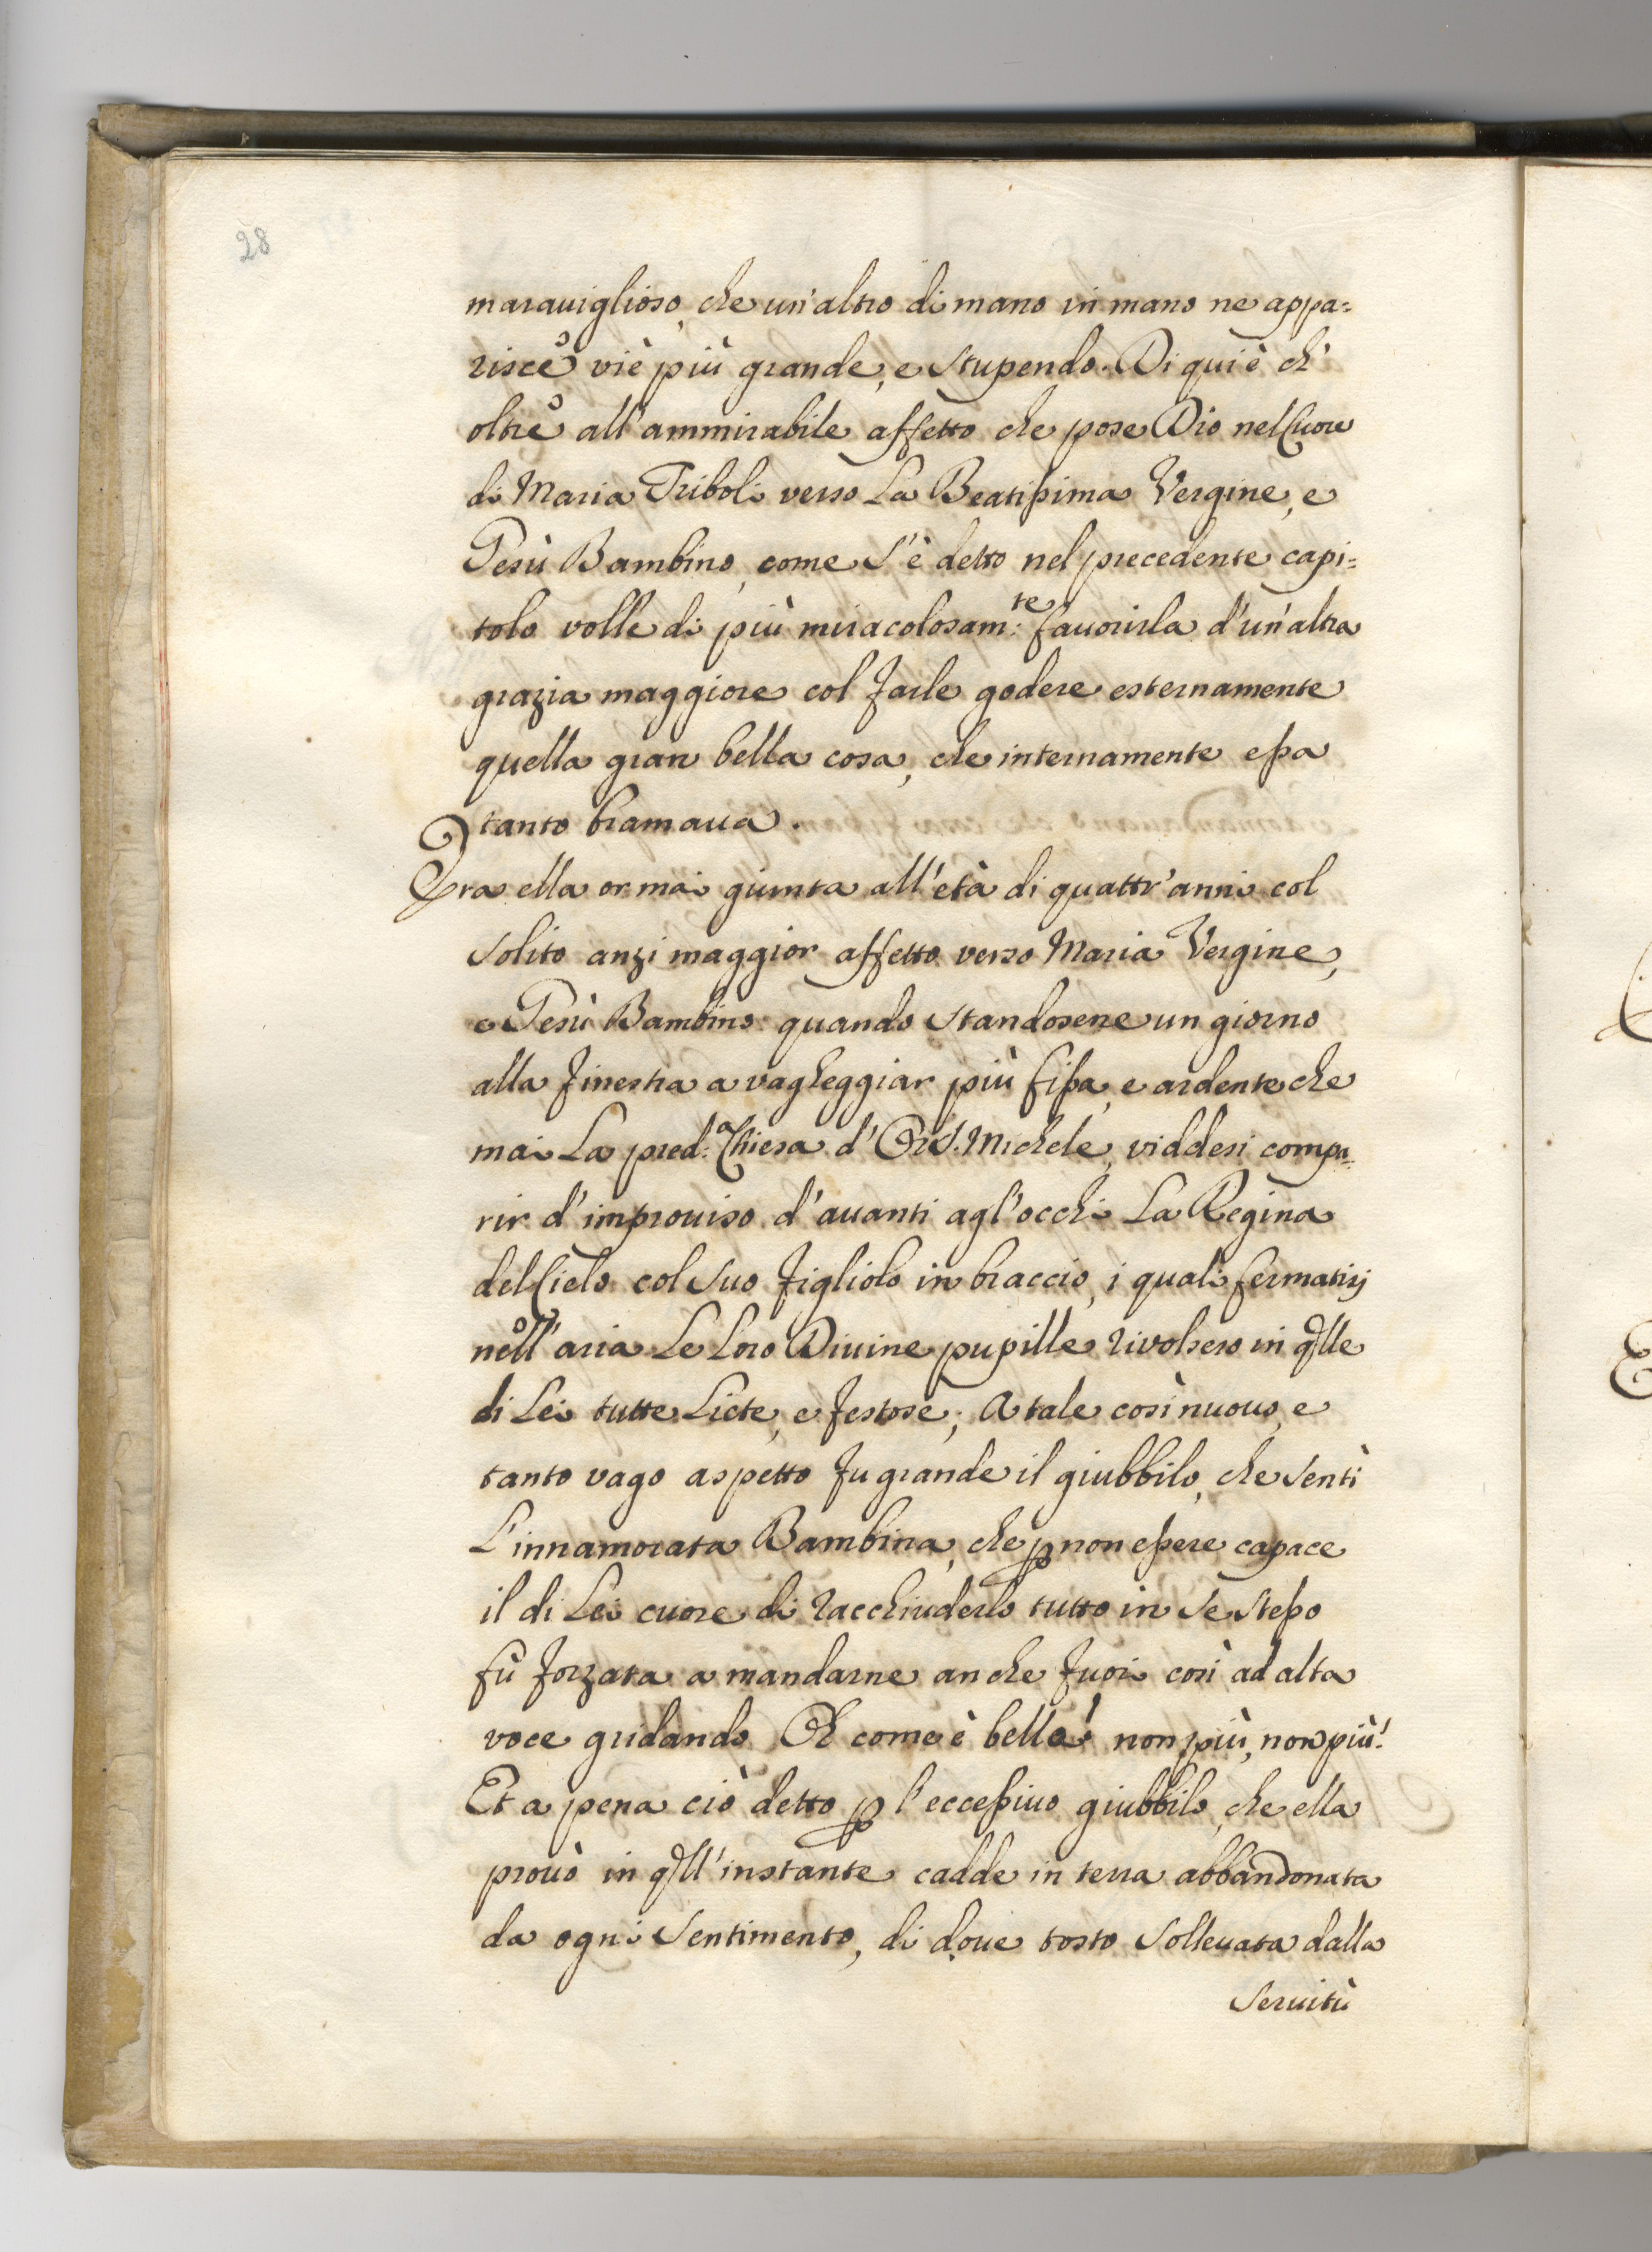 28
marauiglioso, che un'altro di mano in mano ne appa=
risce viè più grande, e stupendo. Di qui è ch'
oltre all'ammirabile affetto che pose Dio nel Cuore
di Maria Triboli verso La Beatissima Vergine, e
Giesù Bambino, come s'è detto nel precedente capi=
tolo volle di più miracolosam:te fauorirla d'un'altra
grazia maggiore col farle godere esternamente
quella gran bella cosa, che internamente essa
tanto bramaua.
Era ella ormai giunta all'età di quattr'anni col
solito anzi maggior affetto verso Maria Vergine,
e Giesù Bambino: quando standosene un giorno
alla finestra a vagheggiar più fissa, e ardente che
mai La pred:a Chiesa d'Or S. Michele, viddesi compa=
rir d'improuiso d'auanti agl'occhi La Regina
del Cielo col suo figliolo in braccio, i quali fermatisj
nell'aria Le Loro Diuine pupille riuolsero in qlle
di Lei tutte Liete, e festose; A tale così nuouo, e
tanto vago aspetto fu grande il giubbilo, che sentì
L'innamorata Bambina, che p non essere capace
il di Lei cuore di racchiuderlo tutto in se stesso
fù forzata a mandarne anche fuori così ad alta
voce gridando Oh come è bello! non più, non più!
Et a pena ciò detto p l'eccessiuo giubbilo, che ella
prouò in qll'instante cadde in terra abbandonata
da ogni sentimento, di doue tosto solleuata dalla
seruitù